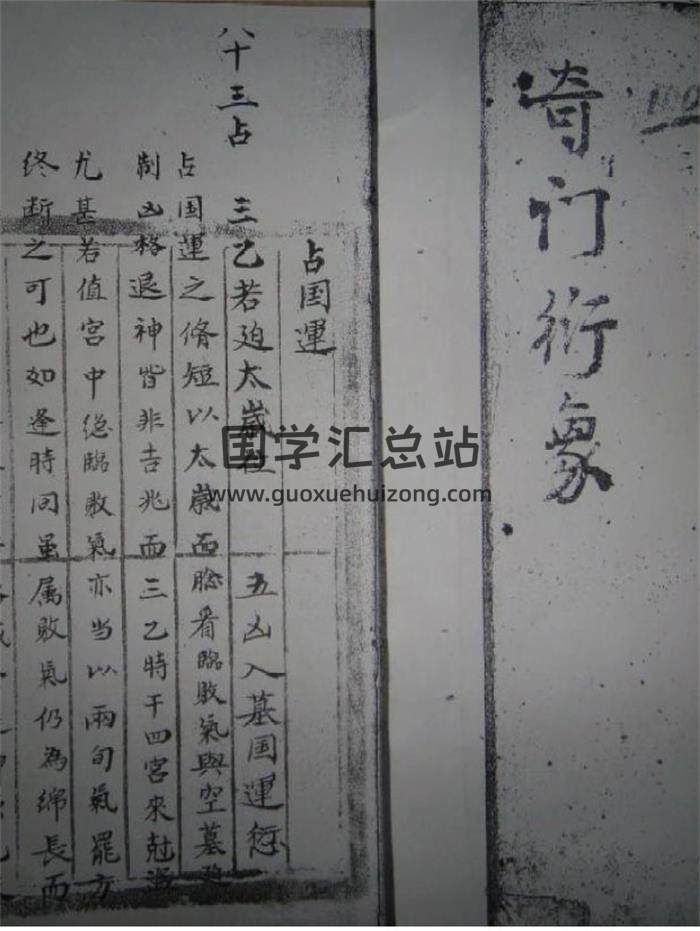 奇门衍象
100
八十三占
占国運
三乙若廹太歲位 五凶入墓国運
占国運之脩短以太歲而脸看臨敗氣與空墓廹
制凶格退神皆非吉兆而三乙時干四宮來尅
尤甚若值宮中緫臨敗氣亦当以兩旬氣罷方
終断之可也如逢時囘虽属敗氣仍為綿長而
国学汇总站
www.guoxuehuizong.com